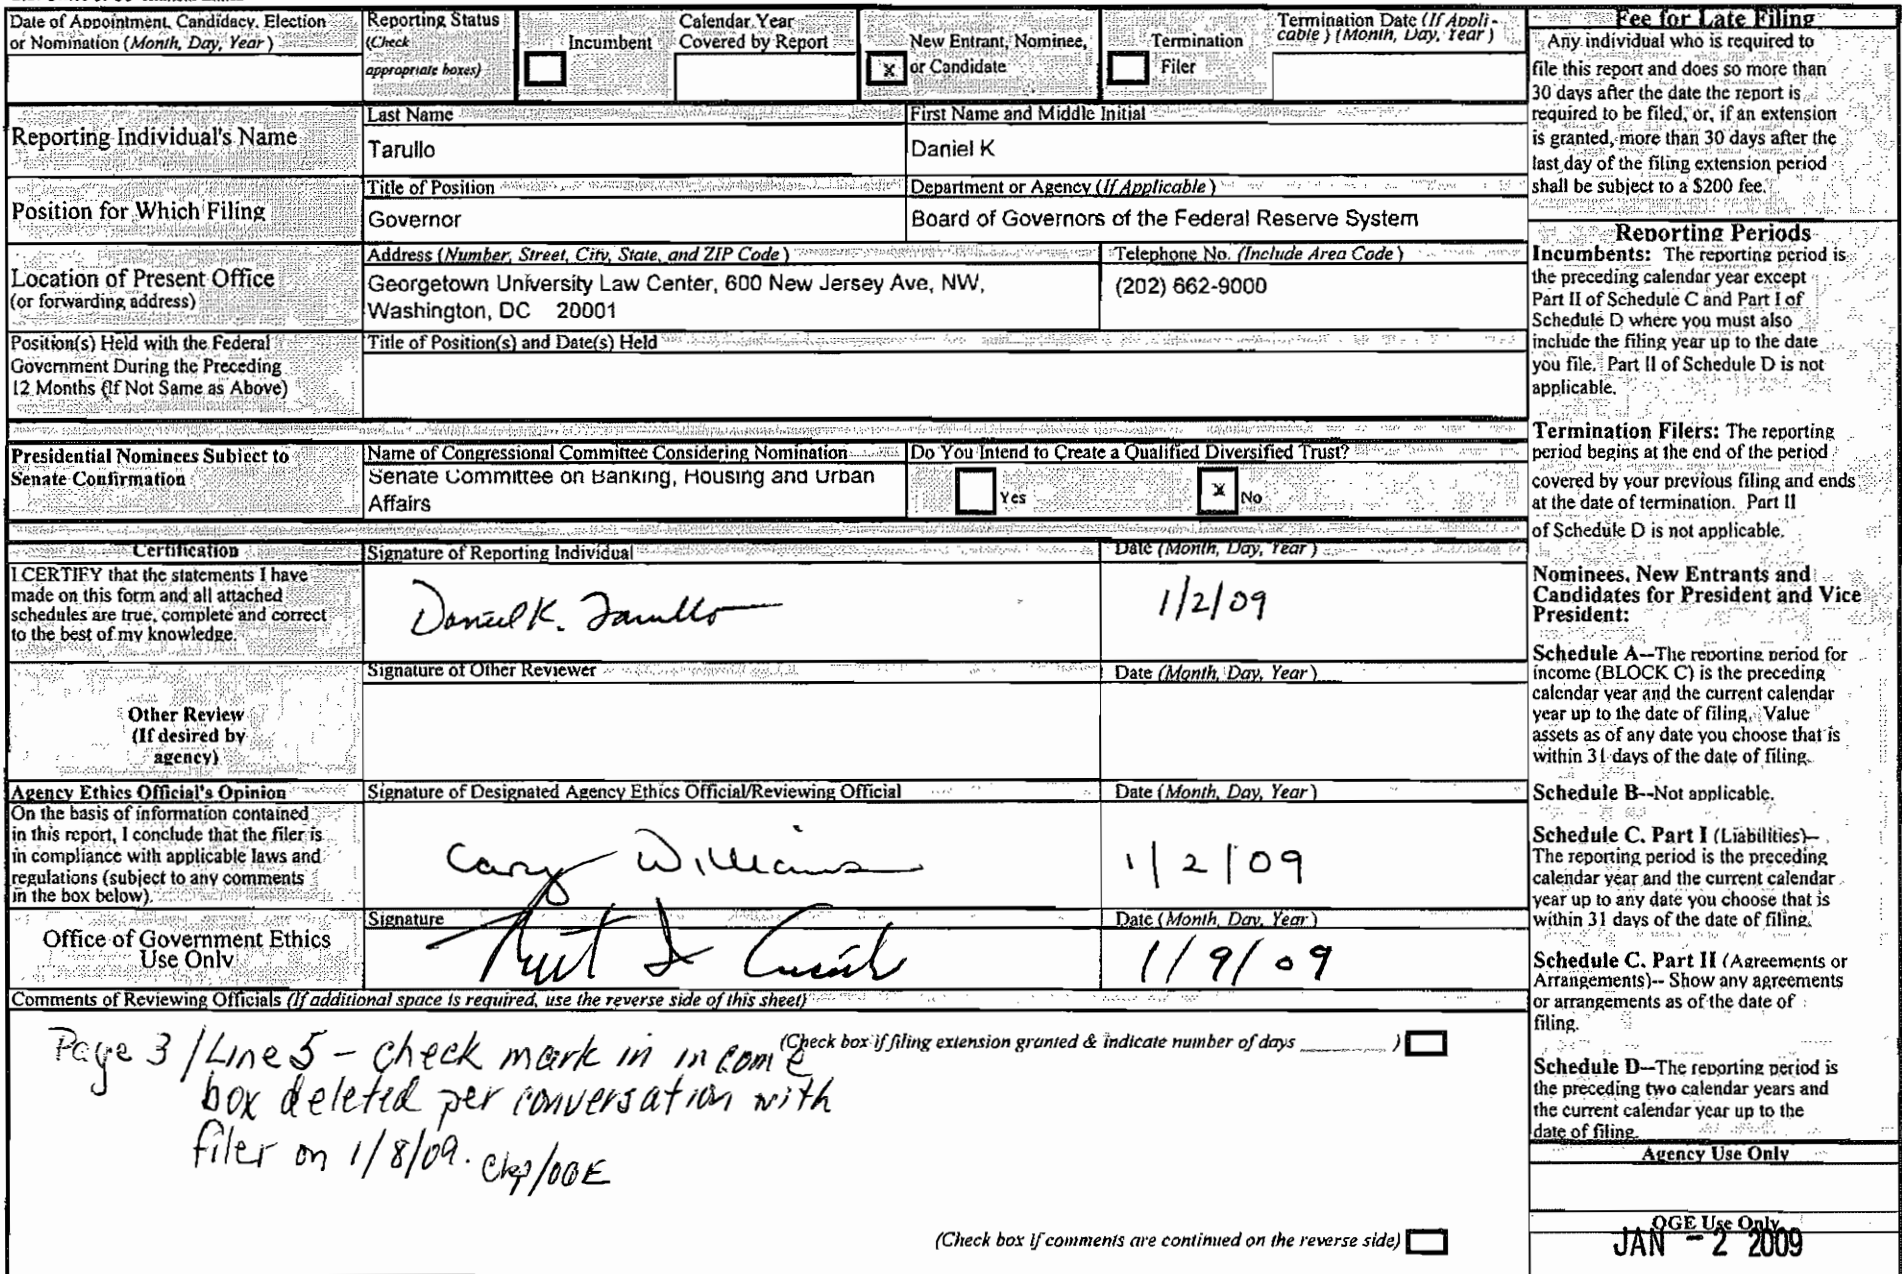 Date of Appointment, Candidacy, Election
or Nomination (Month, Day, Year)
Reporting Status
(Check
appropriate boxes)
Incumbent
Calendar Year
Covered by Report
x
New Entrant, Nominee,
or Candidate
Termination
Filer
Termination Date (If Appli-
cable) (Month, Day, Year)
Reporting Individual's Name
Last Name
Tarullo
First Name and Middle Initial
Daniel K
Position for Which Filing
Title of Position
Governor
Department or Agency (If Applicable)
Board of Governors of the Federal Reserve System
Location of Present Office
(or forwarding address)
Address (Number, Street, City, State, and ZIP Code)
Georgetown University Law Center, 600 New Jersey Ave, NW,
Washington, DC 20001
Telephone No. (Include Area Code)
(202) 662-9000
Position(s) Held with the Federal
Government During the Preceding
12 Months (If Not Same as Above)
Title of Position(s) and Date(s) Held
Presidential Nominees Subject to
Senate Confirmation
Name of Congressional Committee Considering Nomination
Senate Committee on Banking, Housing and Urban
Affairs
Do You Intend to Create a Qualified Diversified Trust?
Yes
x
No
Certification
I CERTIFY that the statements I have
made on this form and all attached
schedules are true, complete and correct
to the best of my knowledge.
Signature of Reporting Individual
Daniel K. Tarullo
Date (Month, Day, Year)
1/2/09
Other Review
(If desired by
agency)
Signature of Other Reviewer
Date (Month, Day, Year)
Agency Ethics Official's Opinion
On the basis of information contained
in this report, I conclude that the filer is
in compliance with applicable laws and
regulations (subject to any comments
in the box below).
Signature of Designated Agency Ethics Official/Reviewing Official
Cary Williams
Date (Month, Day, Year)
1/2/09
Office of Government Ethics
Use Only
Signature
Date (Month, Day, Year)
1/9/09
Comments of Reviewing Officials (If additional space is required, use the reverse side of this sheet)
(Check box if filing extension granted & indicate number of days ________ )
Page 3/Line 5 - check mark in income
box deleted per conversation with
filer on 1/8/09.
(Check box if comments are continued on the reverse side)
Fee for Late Filing
Any individual who is required to
file this report and does so more than
30 days after the date the report is
required to be filed, or, if an extension
is granted, more than 30 days after the
last day of the filing extension period
shall be subject to a $200 fee.
Reporting Periods
Incumbents: The reporting period is
the preceding calendar year except
Part II of Schedule C and Part I of
Schedule D where you must also
include the filing year up to the date
you file. Part II of Schedule D is not
applicable.
Termination Filers: The reporting
period begins at the end of the period
covered by your previous filing and ends
at the date of termination. Part II
of Schedule D is not applicable.
Nominees, New Entrants and
Candidates for President and Vice
President:
Schedule A--The reporting period for
income (BLOCK C) is the preceding
calendar year and the current calendar
year up to the date of filing. Value
assets as of any date you choose that is
within 31 days of the date of filing.
Schedule B--Not applicable.
Schedule C, Part I (Liabilities)--
The reporting period is the preceding
calendar year and the current calendar
year up to any date you choose that is
within 31 days of the date of filing.
Schedule C, Part II (Agreements or
Arrangements)-- Show any agreements
or arrangements as of the date of
filing.
Schedule D--The reporting period is
the preceding two calendar years and
the current calendar year up to the
date of filing.
Agency Use Only
OGE Use Only
JAN - 2 2009